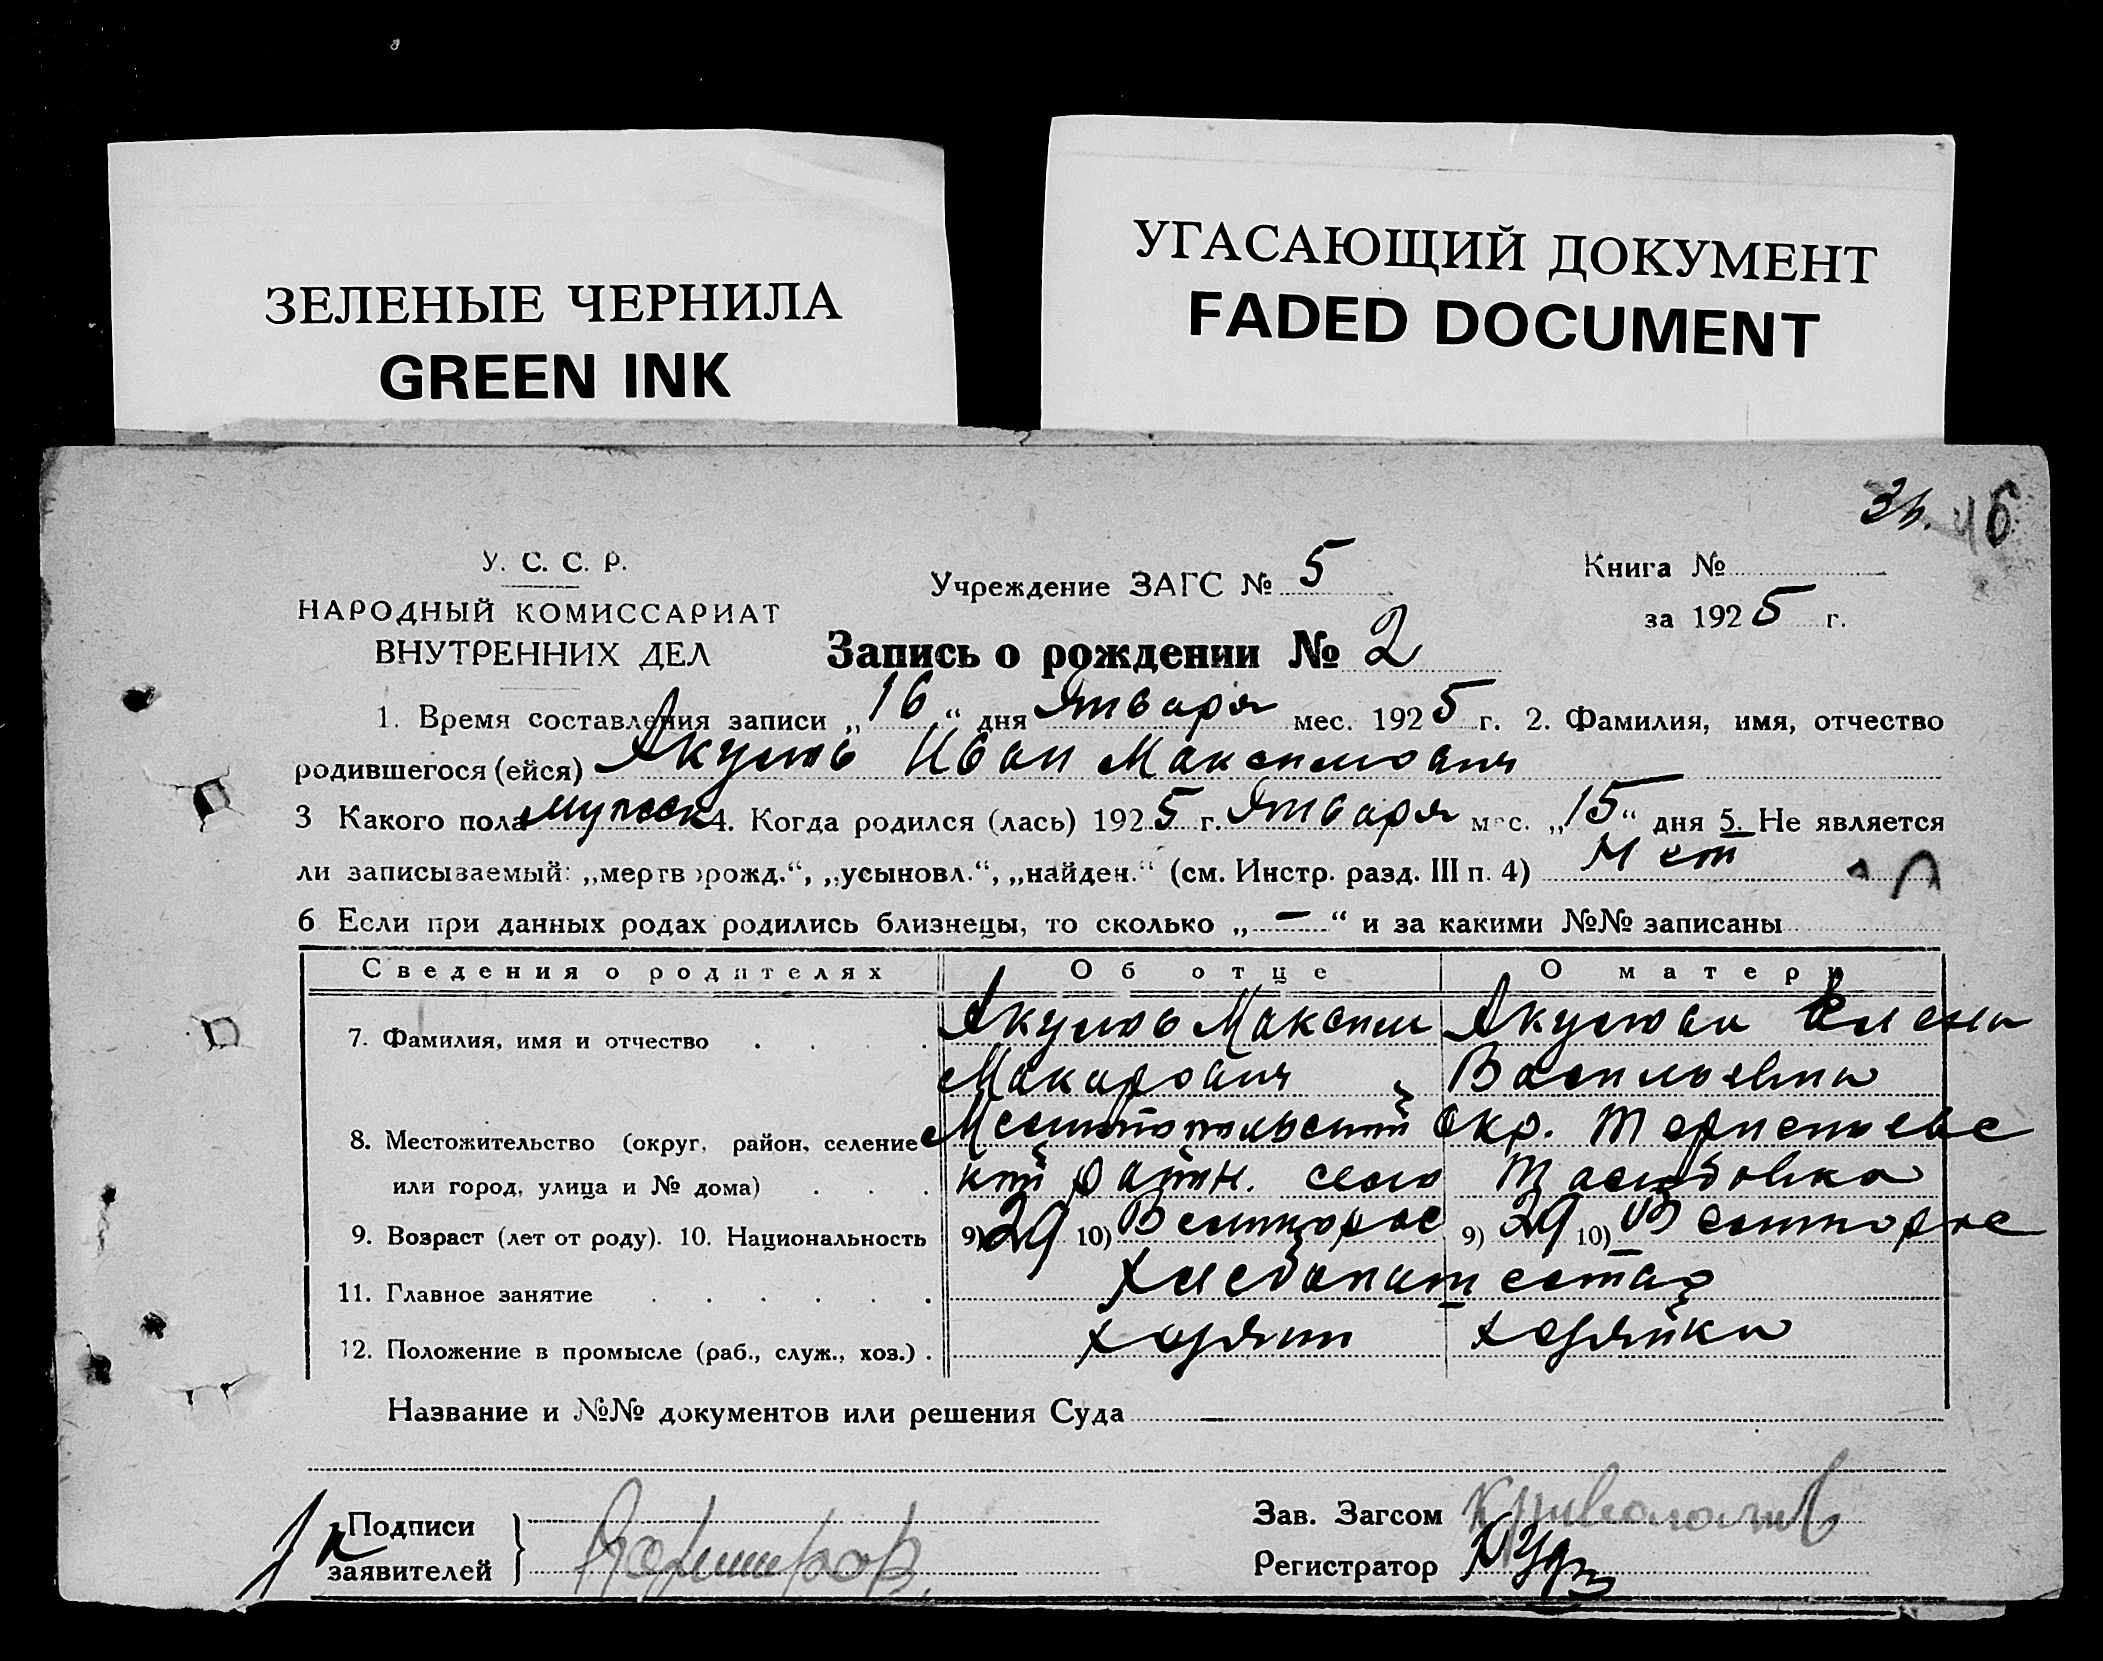 ЗЕЛЕНЫЕ ЧЕРНИЛА
GREEN INK
УГАСАЮЩИЙ ДОКУМЕНТ
FADED DOCUMENT
46
У. С. С. Р.
НАРОДНЫЙ КОМИССАРИАТ
ВНУТРЕННИХ ДЕЛ
Учреждение ЗАГС № 5
Книга №
за 1925 г.
Запись о рождении № 2
1. Время составления записи „16“ дня Января мес. 1925 г. 2. Фамилия, имя, отчество
родившегося (ейся) Иван Максимович
3 Какого пола мужск 4. Когда родился (лась) 1925 г. Января мес. „15“ дня 5. Не является
ли записываемый: „мертворожд.“, „усыновл.“, „найден.“ (см. Инстр. разд. III п. 4) Нет
6 Если при данных родах родились близнецы, то сколько „—“ и за какими №№ записаны
Сведения о родителях Об отце О матери
7. Фамилия, имя и отчество Максим
Макарович Васильевна
8. Местожительство (округ, район, селение Окр.
или город, улица и № дома) район. село
9. Возраст (лет от роду). 10. Национальность 9) 29 10) 9) 29 10)
11. Главное занятие Хлебопашество
12. Положение в промысле (раб., служ., хоз.) хозяин хозяйка
Название и №№ документов или решения Суда
Подписи
заявителей
Зав. Загсом
Регистратор